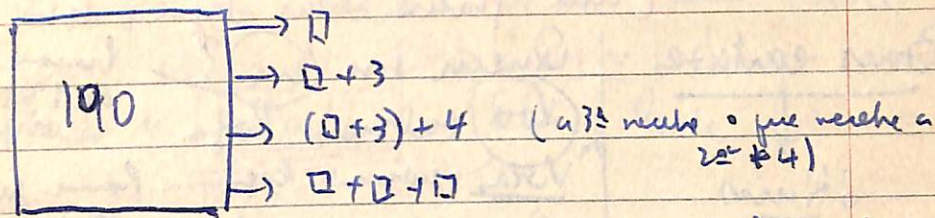 190
→ □
→ □ + 3
→ (□ + 3) + 4 (a 3ª recebe o que recebe a
2ª + 4)
→ □ + □ + □